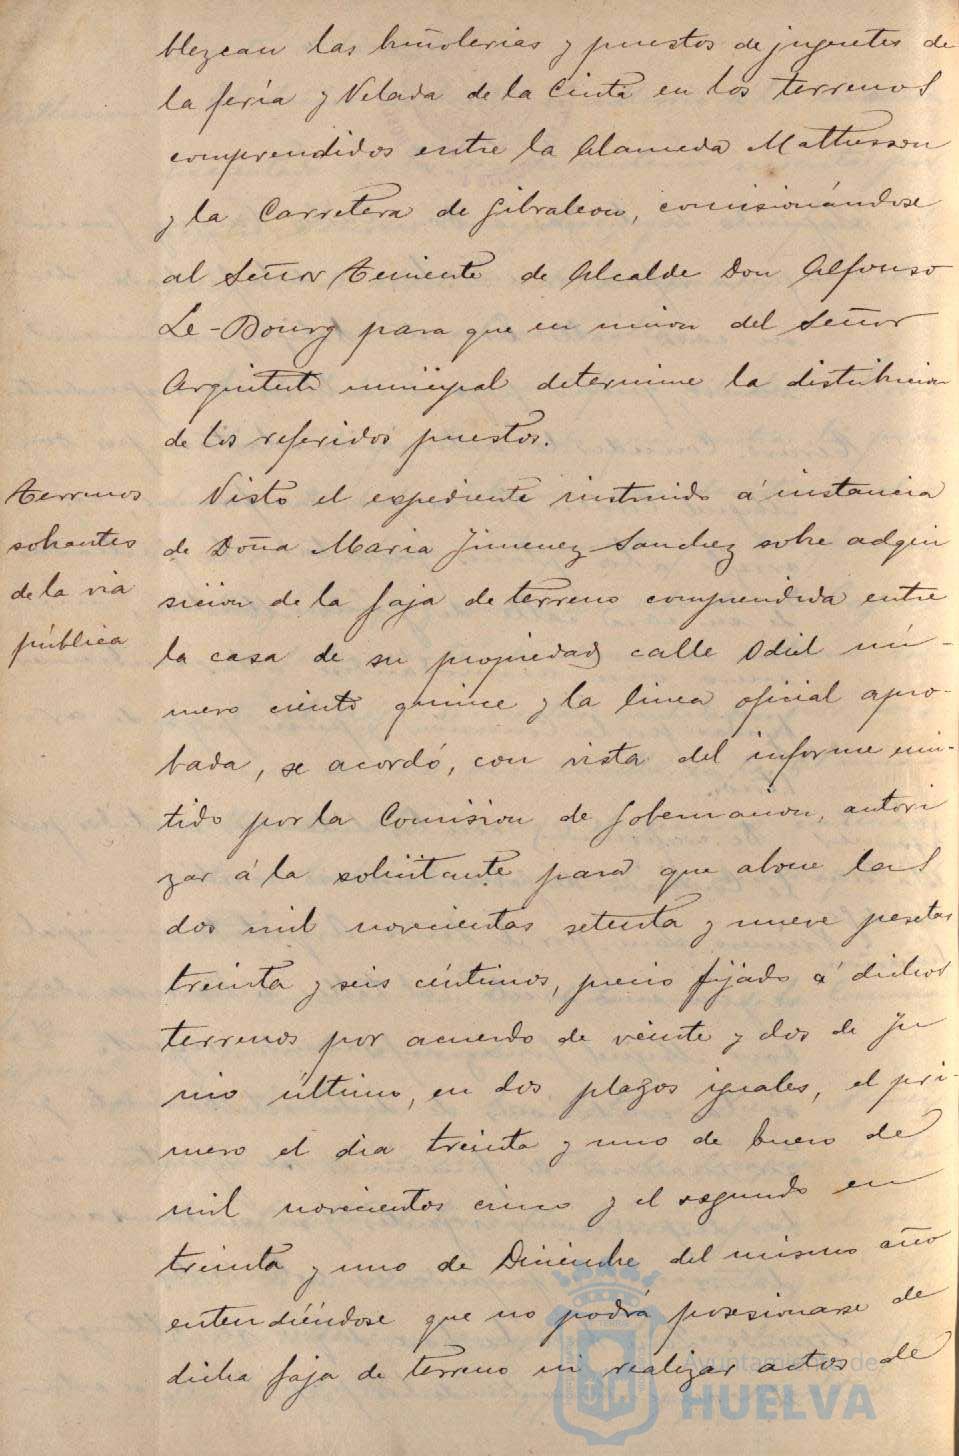 blezcan las buñolerias y puestos de juguetes de
la feria y Velada de la Cinta en los terrenos
comprendidos entre la Alameda Mattheson
y la Carretera de Gibraleon, comisionándose
al Señor Teniente de Alcalde Don Alfonso
Le-Bourg para que en union del Señor
Arquitecto municipal determine la distribucion
de los referidos puestos.
Terrenos
sobrantes
de la via
pública
Visto el expediente instruido á instancia
de Doña Maria Jimenez Sanchez sobre adqui
sicion de la faja de terreno comprendida entre
la casa de su propiedad calle Odiel nú-
mero ciento quince y la linea oficial apro-
bada, se acordó, con vista del informe emi-
tido por la Comision de Gobernacion, autori
zar á la solicitante para que abone las
dos mil novecientas setenta y nueve pesetas
treinta y seis céntimos, precio fijado á dichos
terrenos por acuerdo de veinte y dos de Ju
nio último, en dos plazos iguales, el pri-
mero el dia treinta y uno de Enero de
mil novecientos cinco y el segundo en
treinta y uno de Diciembre del mismo año
entendiéndose que no podrá posesionarse de
dicha faja de terreno ni realizar actos de
Ayuntamiento de
HUELVA